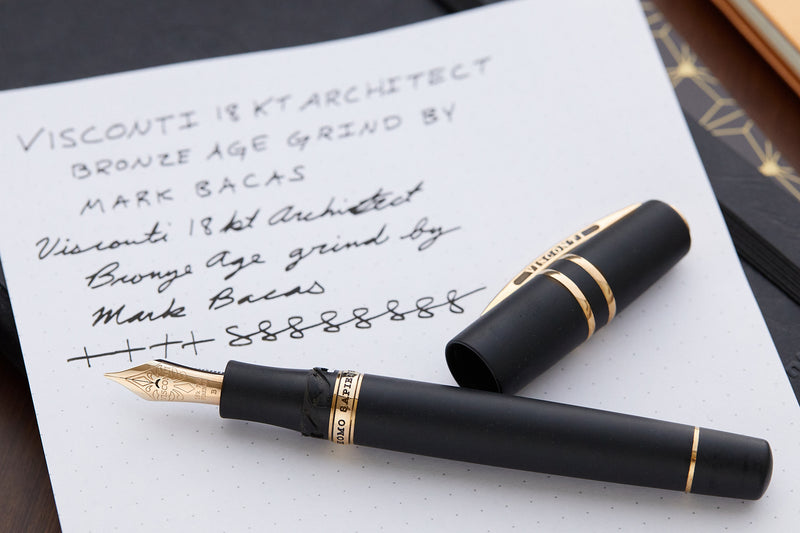 VISCONTI 18 KT ARCHITECT
BRONZE AGE GRIND BY
MARK BACAS
Visconti 18 kt Architect
Bronze Age grind by
Mark Bacas
VISCONTI
HOMO SAPIE